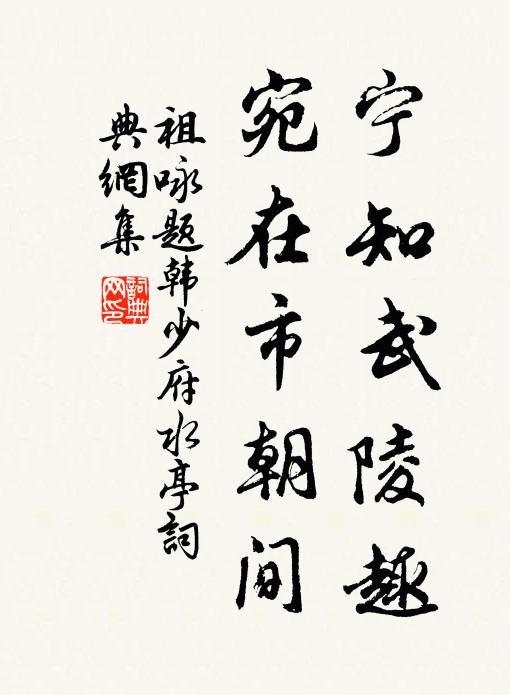 宁知武陵趣
宛在市朝间
祖咏题韩少府水亭詞
典網集
詞典网印